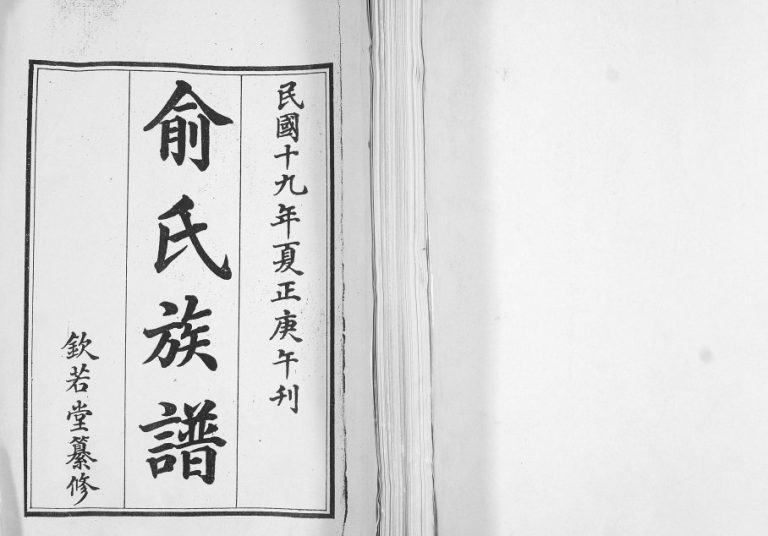 民國十九年夏正庚午刊
俞氏族譜
欽若堂纂修